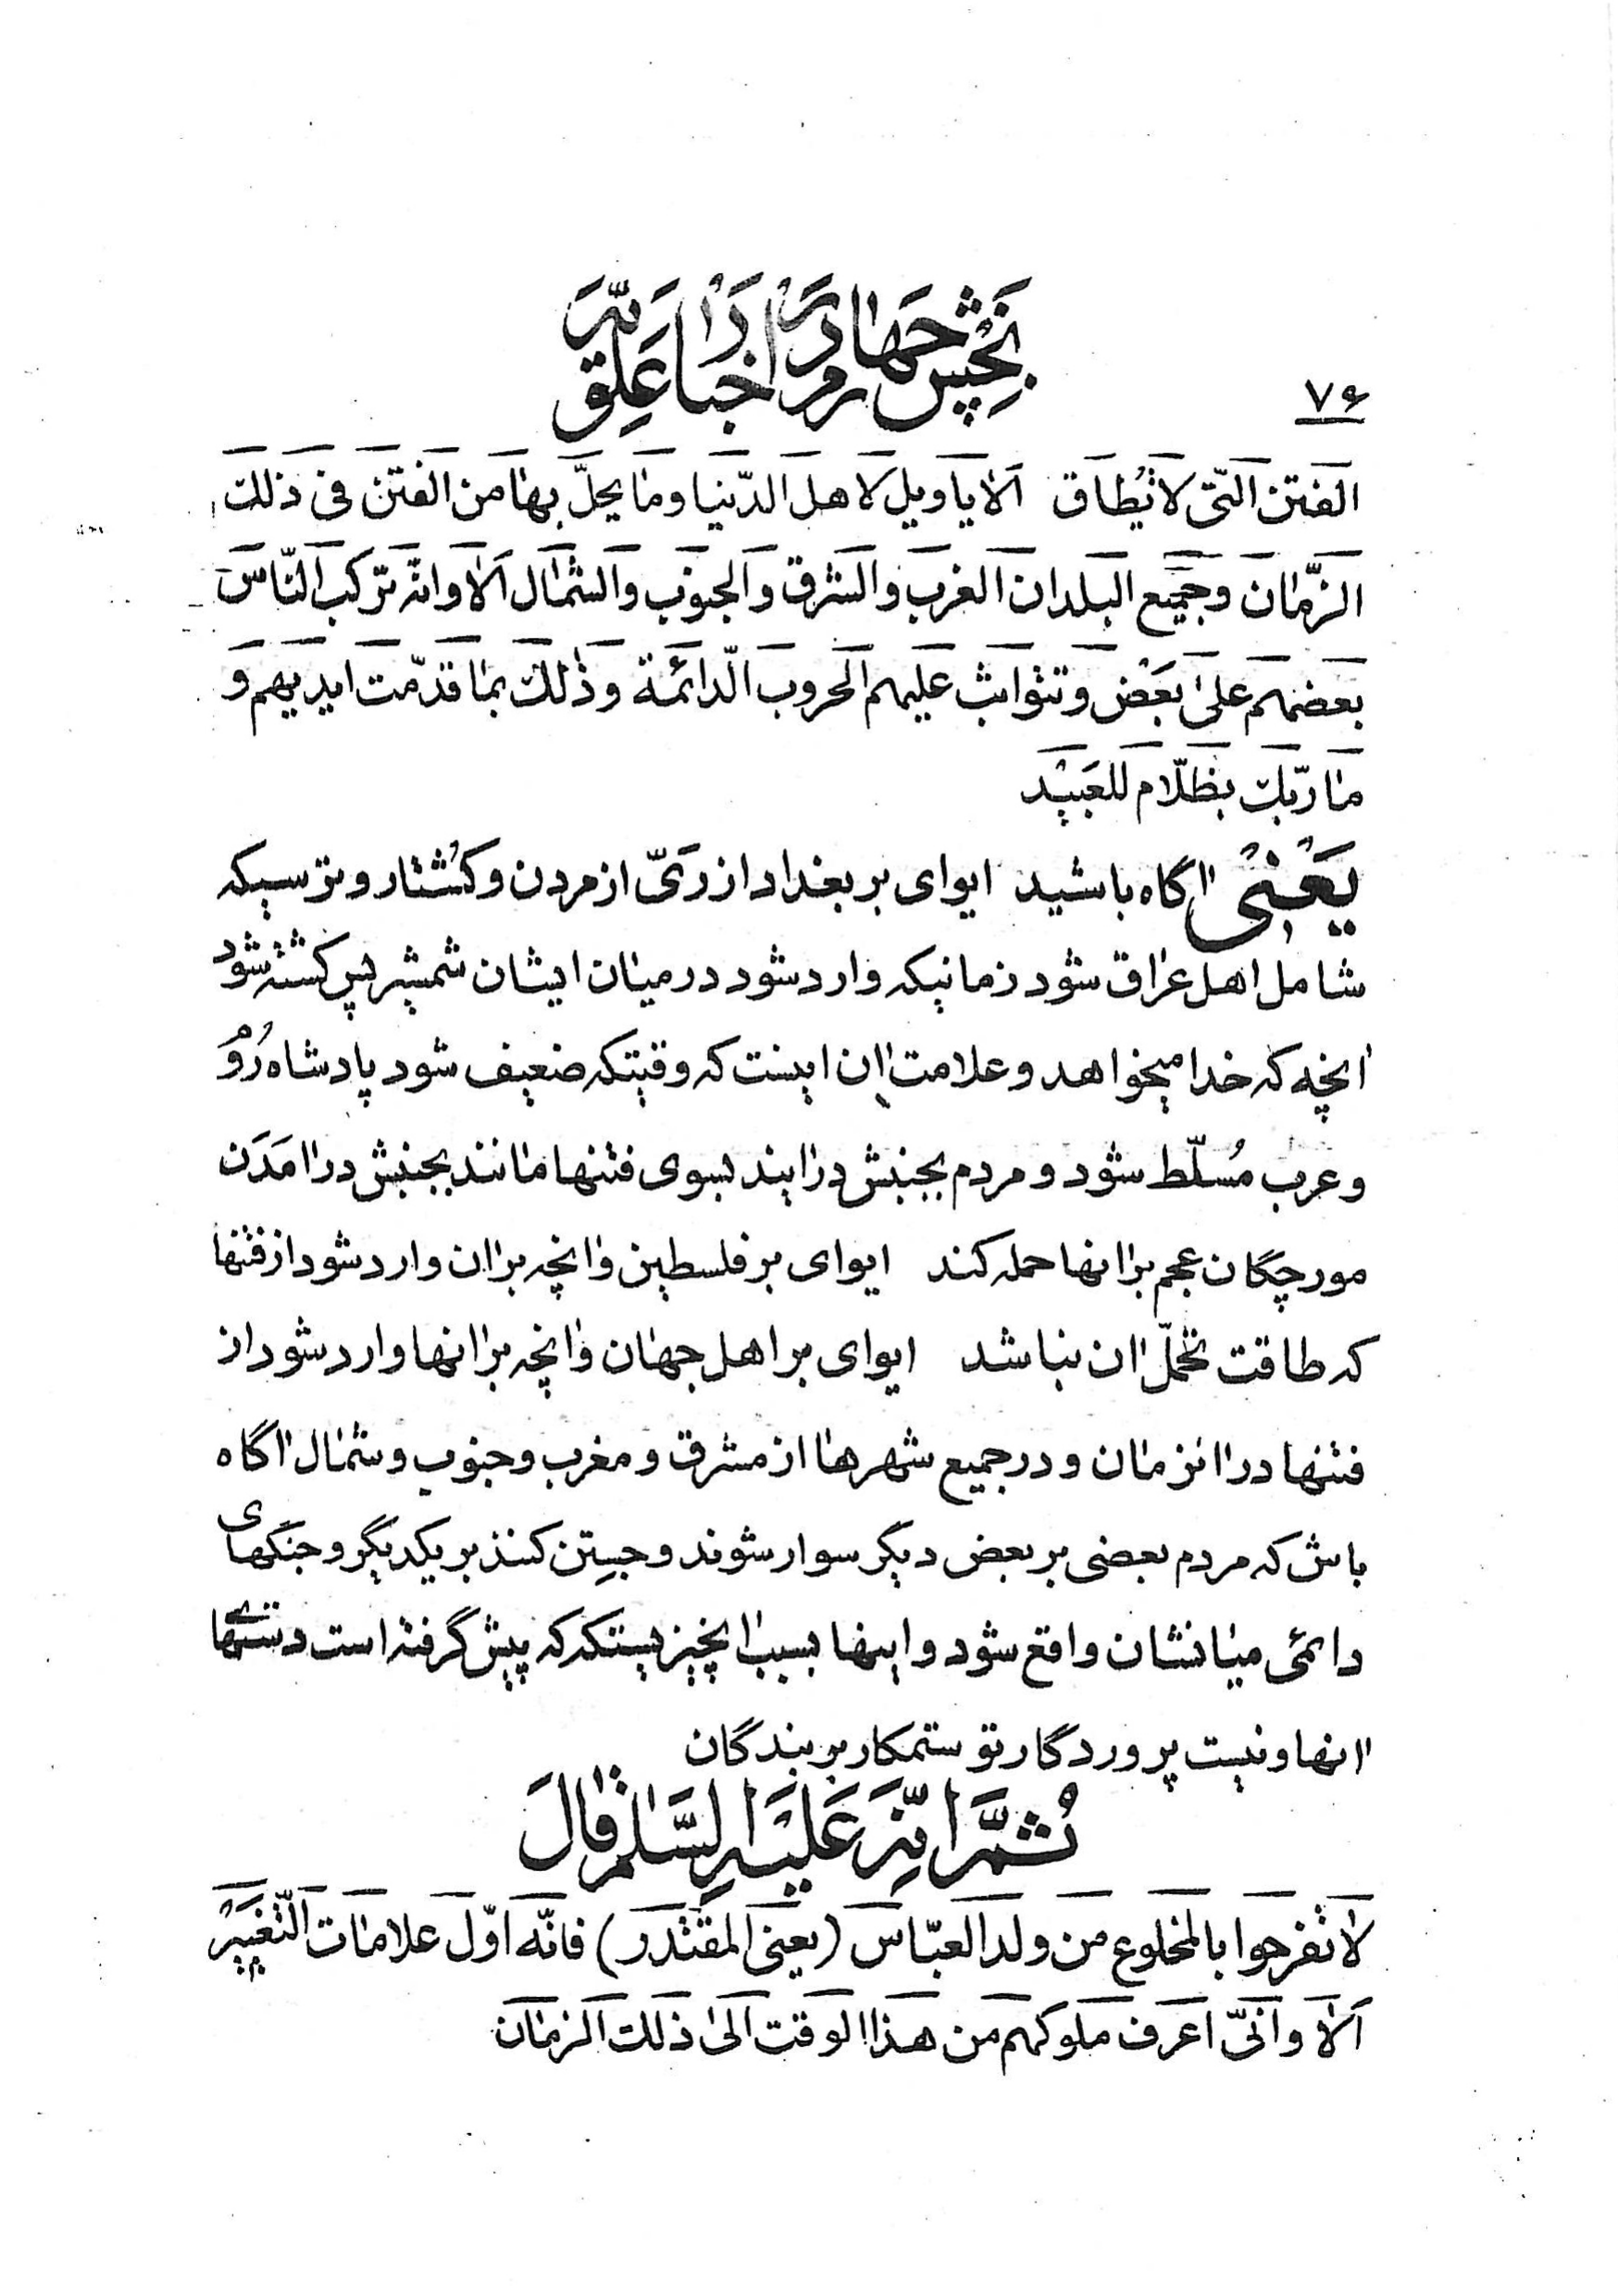 بخش چهارم در اخبار علویه
۷۶
الفتن التی لا تُطاق الا یا ویل لاهل الدّنیا وما یحلّ بها من الفتن فی ذلک
الزّمان وجمیع البلدان الغرب والشرق والجنوب والشمال الا وانّه ترکب النّاس
بعضهم علی بَعْض وتتواثب علیهم الحروب الدّائمة وذلک بما قدّمت ایدیهم وَ
ما ربّک بظلّام للعَبید
یَعْنی اگاه باشید ایوای بر بغداد از ریّ از مردن و کُشتار و ترسیکه
شامل اهل عراق شود زمانیکه وارد شود در میان ایشان شمشیر پس کشته شود
انچه که خدا میخواهد و علامت ان اینست که وقتیکه ضعیف شود پادشاه رُوم
و عرب مُسلّط شود و مردم بجنبش درایند بسوی فتنها مانند بجنبش درامَدَن
مورچگان عجم برانها حمله کند ایوای بر فلسطین وانچه بران وارد شود از فتنها
که طاقت تحمّل ان نباشد ایوای بر اهل جهان وانچه برانها وارد شود از
فتنها در انزمان و در جمیع شهرها از مشرق و مغرب و جنوب و شمال اگاه
باش که مردم بعضی بر بعض دیگر سوار شوند و جستن کنند بر یکدیگر و جنگهای
دائمی میانشان واقع شود و اینها بسبب انچیزیستکه که پیش گرفته است دستهای
انها و نیست پروردگار تو ستمکار بر بندگان
ثُمَّ اِنَّهُ عَلَیْهِ السَّلامُ قالَ
لا تفرحوا بالمخلوع من ولد العبّاس (یعنی المقتدر) فانّه اوّل علامات التّغییر
الا وانّی اعرف ملوکهم من هذا الوقت الی ذلک الزمان